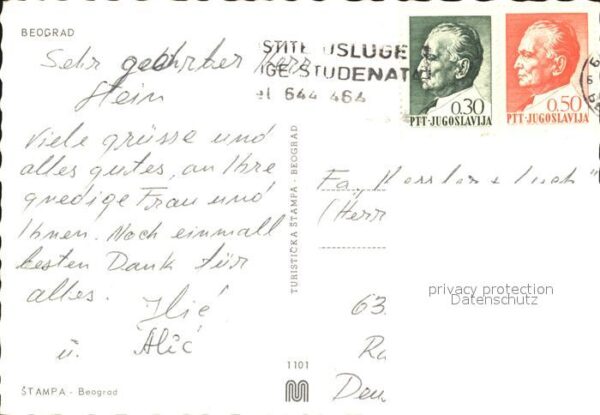 BEOGRAD
Sehr geehrter Herr
Stein
Viele grüsse und
alles gutes, an Ihre
gnedige Frau und
Ihnen. Noch einmall
besten Dank für
alles.
Ilić
u. Alić
ŠTAMPA - Beograd
TURISTIČKA ŠTAMPA - BEOGRAD
1101
STITE USLUGE
IGE STUDENAT
el 644 464
0.30
PTT·JUGOSLAVIJA
0.50
PTT·JUGOSLAVIJA
Fa. Kessler +
(Herr
63
Ra
Deu
privacy protection
Datenschutz